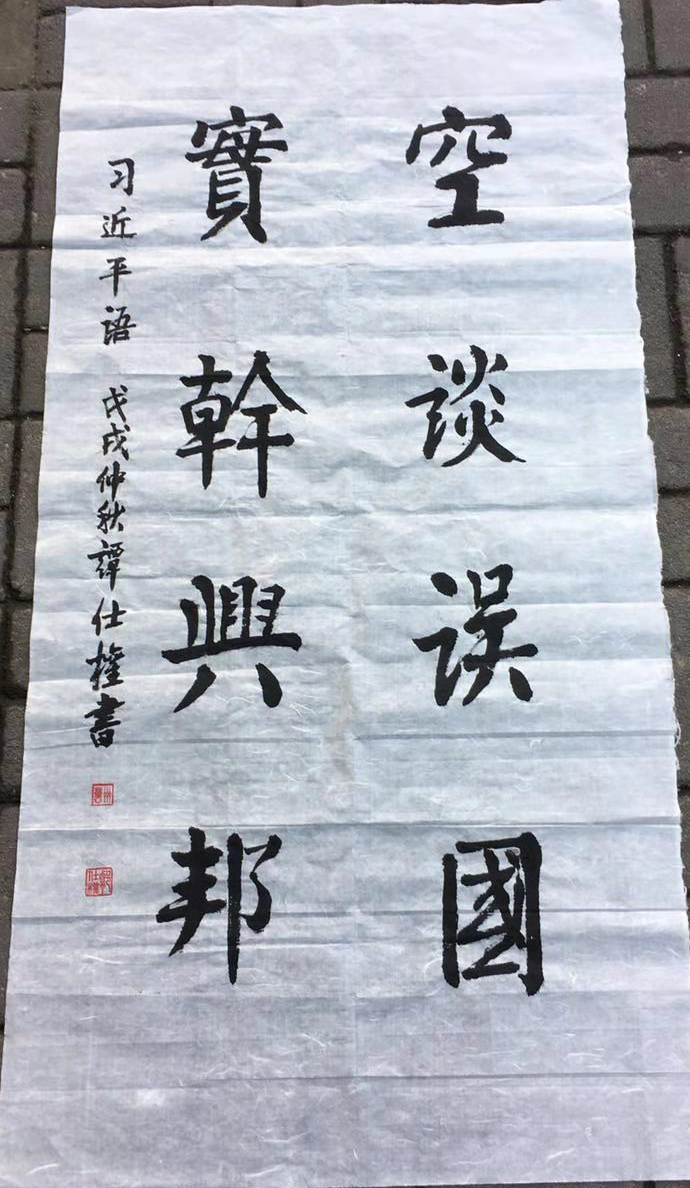 空談误國
實幹興邦
习近平语
戊戌仲秋譚仕權書